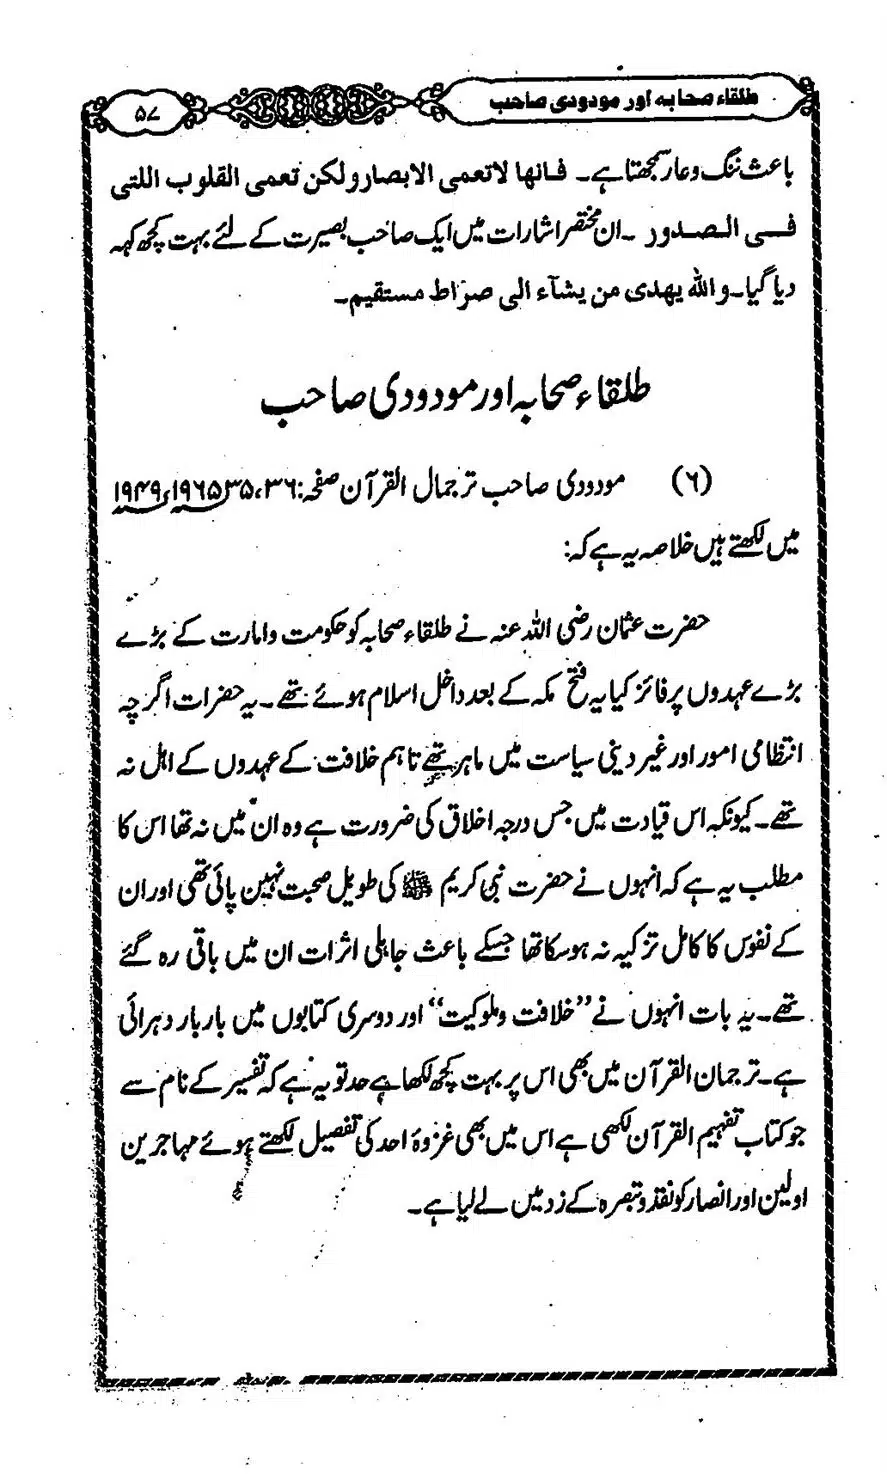 طلقاء صحابہ اور مودودی صاحب
۵۷
باعث ننگ وعار سمجھتا ہے۔ فانها لاتعمی الابصار ولكن تعمی القلوب اللتی
فی الصدور ۔ان مختصر اشارات میں ایک صاحب بصیرت کے لئے بہت کچھ کہہ
دیا گیا۔والله يهدى من يشآء الى صرٰاط مستقيم۔
طلقاء صحابہ اور مودودی صاحب
(٦) مودودی صاحب ترجمال القرآن صفحہ:۳۵،۳۶ ۱۹۶۵ء، ۱۹۴۹
میں لکھتے ہیں خلاصہ یہ ہے کہ:
حضرت عثمان رضی اللہ عنہ نے طلقاء صحابہ کو حکومت وامارت کے بڑے
بڑے عہدوں پر فائز کیا یہ فتح مکہ کے بعد داخل اسلام ہوئے تھے۔یہ حضرات اگرچہ
انتظامی امور اور غیر دینی سیاست میں ماہر تھے تاہم خلافت کے عہدوں کے اہل نہ
تھے۔کیونکہ اس قیادت میں جس درجہ اخلاق کی ضرورت ہے وہ ان میں نہ تھا اس کا
مطلب یہ ہے کہ انہوں نے حضرت نبی کریم ﷺ کی طویل صحبت نہین پائی تھی اور ان
کے نفوس کا کامل تزکیہ نہ ہوسکا تھا جسکے باعث جاہلی اثرات ان میں باقی رہ گئے
تھے۔یہ بات انہوں نے ”خلافت وملوکیت“ اور دوسری کتابوں میں بار بار دہرائی
ہے۔ترجمان القرآن میں بھی اس پر بہت کچھ لکھا ہے حد تو یہ ہے کہ تفسیر کے نام سے
جو کتاب تفہیم القرآن لکھی ہے اس میں بھی غزوۂ احد کی تفصیل لکھتے ہوئے مہاجرین
اولین اور انصار کو نقد وتبصرہ کے زد میں لے لیا ہے۔